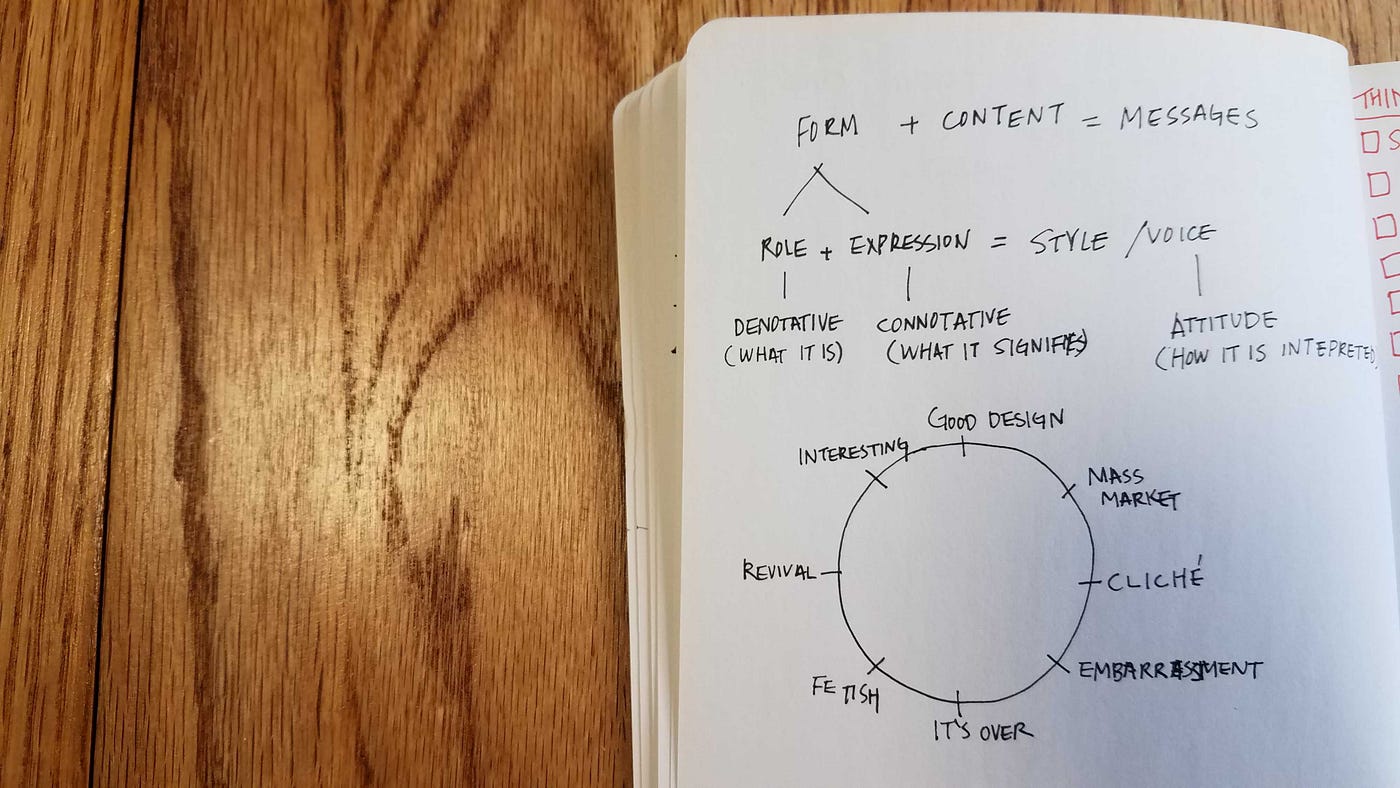 FORM + CONTENT = MESSAGES
ROLE + EXPRESSION = STYLE / VOICE
DENOTATIVE
(WHAT IT IS)
CONNOTATIVE
(WHAT IT SIGNIFIES)
ATTITUDE
(HOW IT IS INTEPRETED)
GOOD DESIGN
MASS
MARKET
CLICHÉ
EMBARRASSMENT
IT'S OVER
FETISH
REVIVAL
INTERESTING
THIN
S